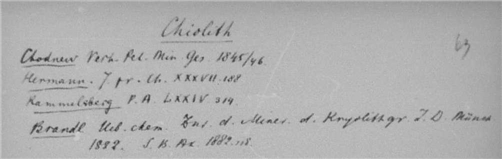 Chiolith
69
Chodnew Verh. Pet. Min. Ges. 1845/46.
Hermann. J. pr. Ch. XXXVII. 188
Rammelsberg P. A. LXXIV 314.
Brandl Ueb. chem. Zus. d. Miner. d. Kryolithgr. I. D. Münch
1882. S. B. Ak. 1882. 118.